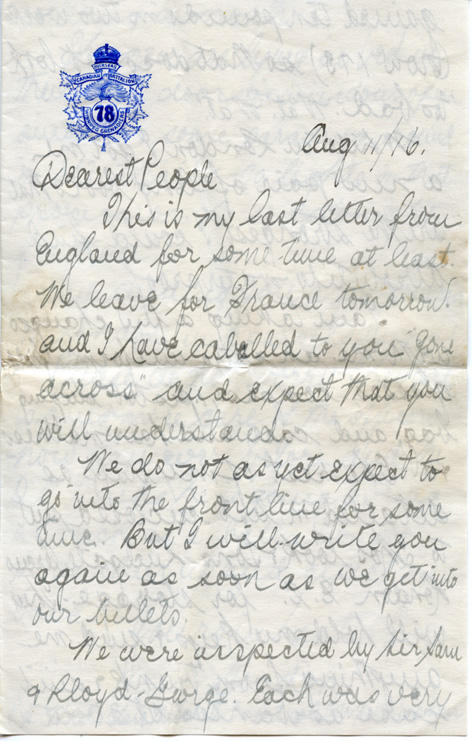 OVERSEAS
CANADIAN BATTALION
78
WINNIPEG GRENADIERS
Aug 11/16.
Dearest People
This is my last letter from
England for some time at least.
We leave for France tomorrow
and I have caballed to you "Gone
across" and expect that you
will understand.
We do not as yet expect to
go into the front line for some
time. But I will write you
again as soon as we get into
our billets.
We were inspected by Sir Sam
& Lloyd-George. Each was very